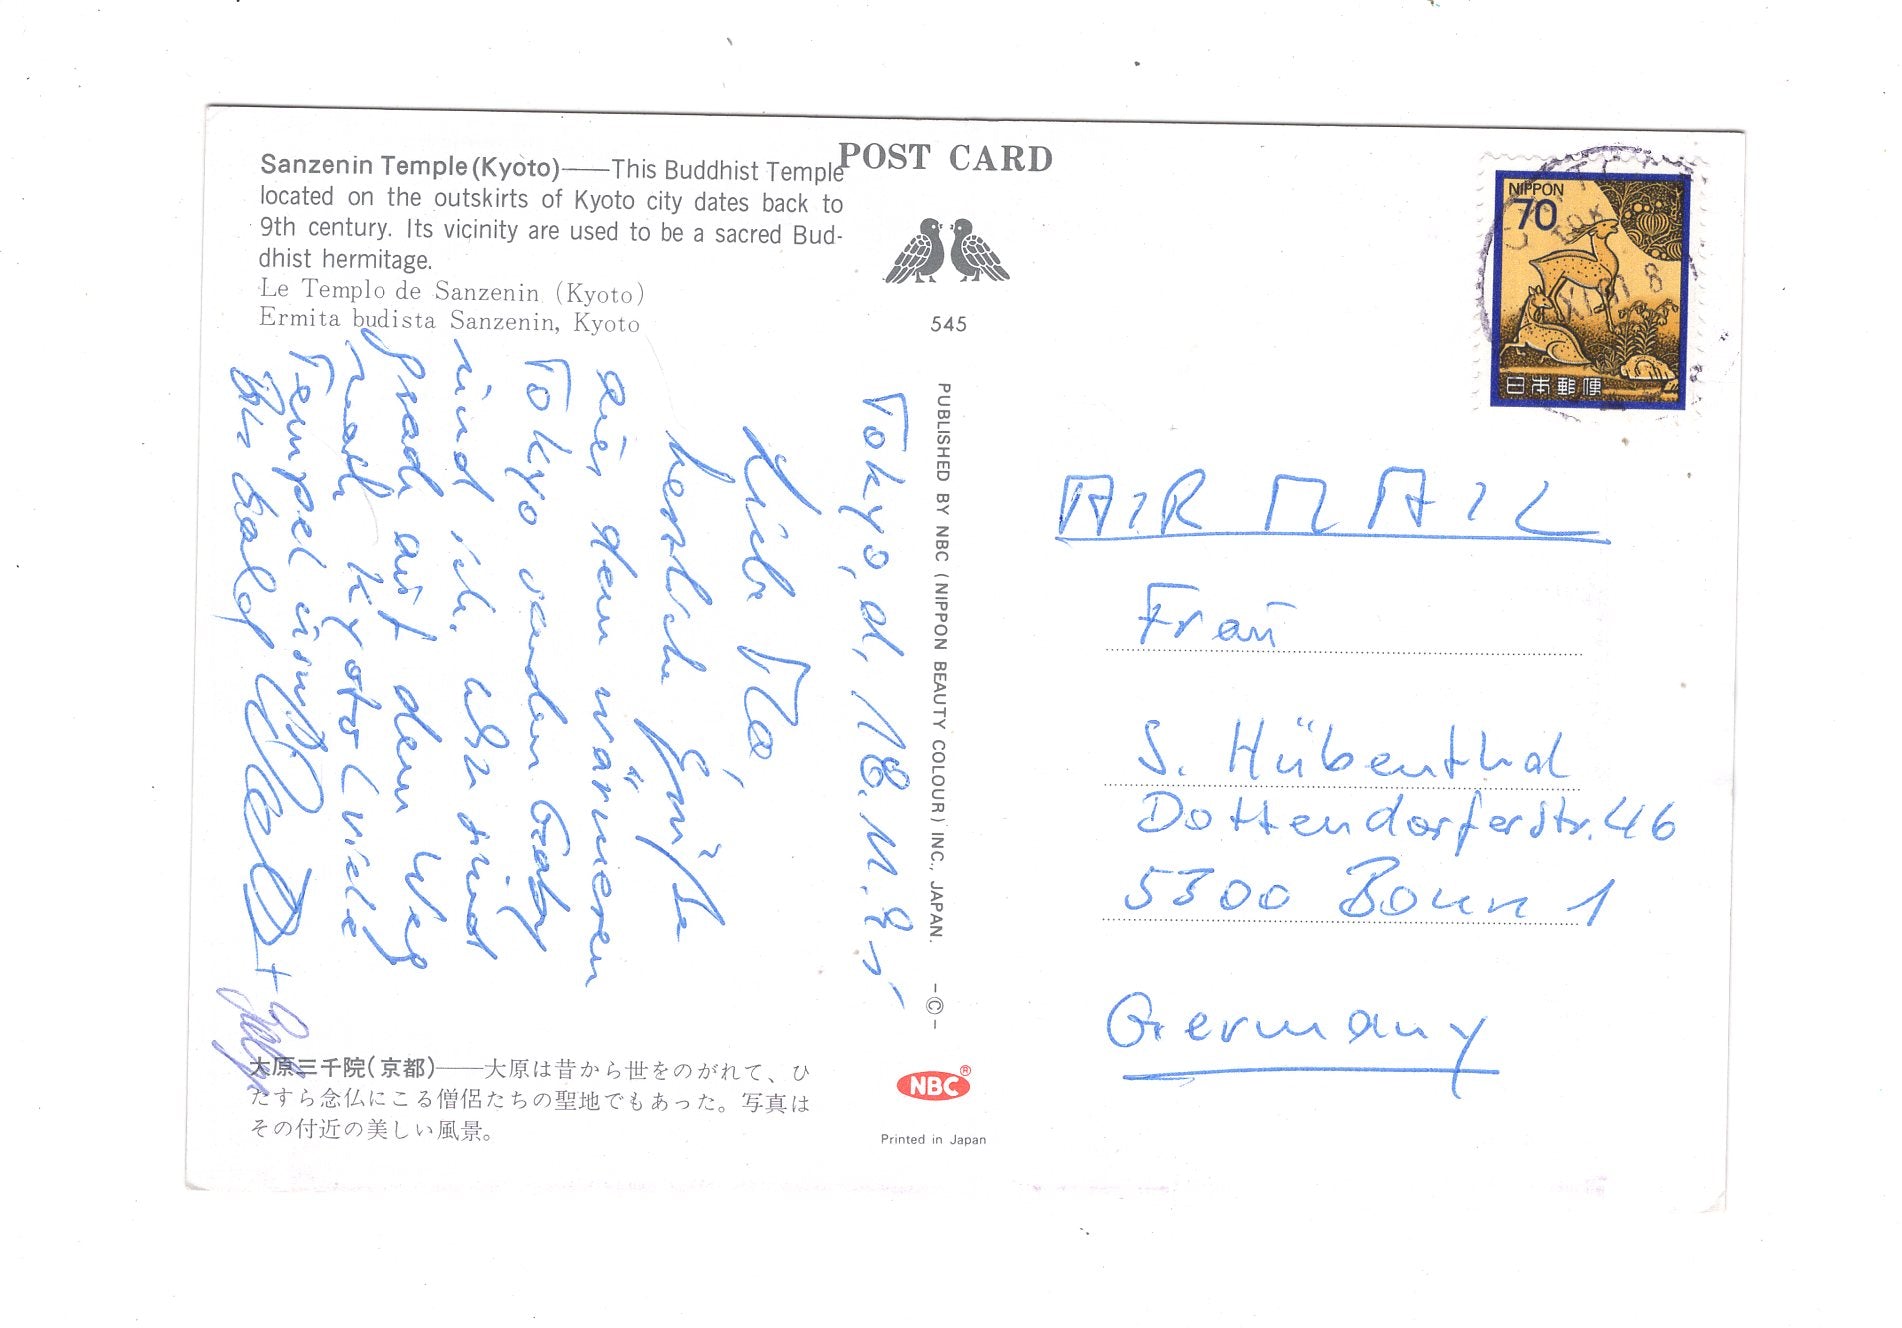 Sanzenin Temple (Kyoto)——This Buddhist Temple
located on the outskirts of Kyoto city dates back to
9th century. Its vicinity are used to be a sacred Bud-
dhist hermitage.
Le Templo de Sanzenin (Kyoto)
Ermita budista Sanzenin, Kyoto
POST CARD
545
PUBLISHED BY NBC (NIPPON BEAUTY COLOUR) INC., JAPAN. -©-
NIPPON
70
日本郵便
Tokyo, d. 18.11.85
Liebe Ma,
herzliche Grüße
aus dem wärmeren
Tokyo senden Gaby
und ich. Wir sind
grad auf dem Weg
nach Kyoto (viele
Tempel usw.)
Bis bald
AIR MAIL
Frau
S. Hübenthal
Dottendorferstr. 46
5300 Bonn 1
Germany
大原三千院(京都)——大原は昔から世をのがれて、ひ
たすら念仏にこる僧侶たちの聖地でもあった。写真は
その付近の美しい風景。
NBC®
Printed in Japan